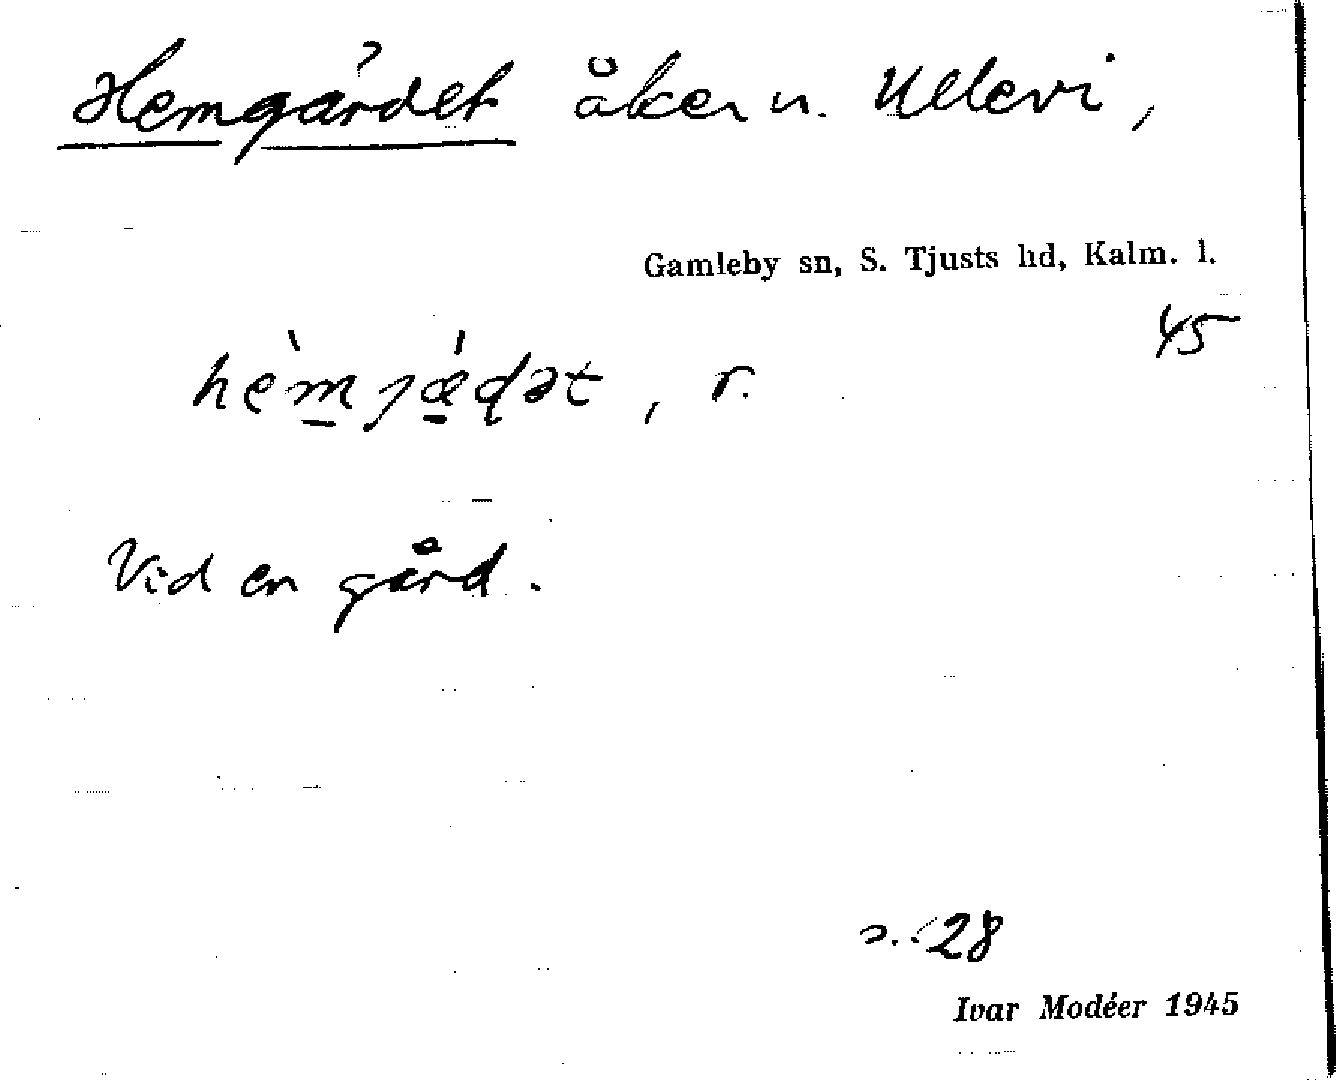 Hemgärdet åker u. Ullevi,
Gamleby sn, S. Tjusts hd, Kalm. l.
45
hèmjæ̀ḍət, r.
Vid en gård.
s. 28
Ivar Modéer 1945